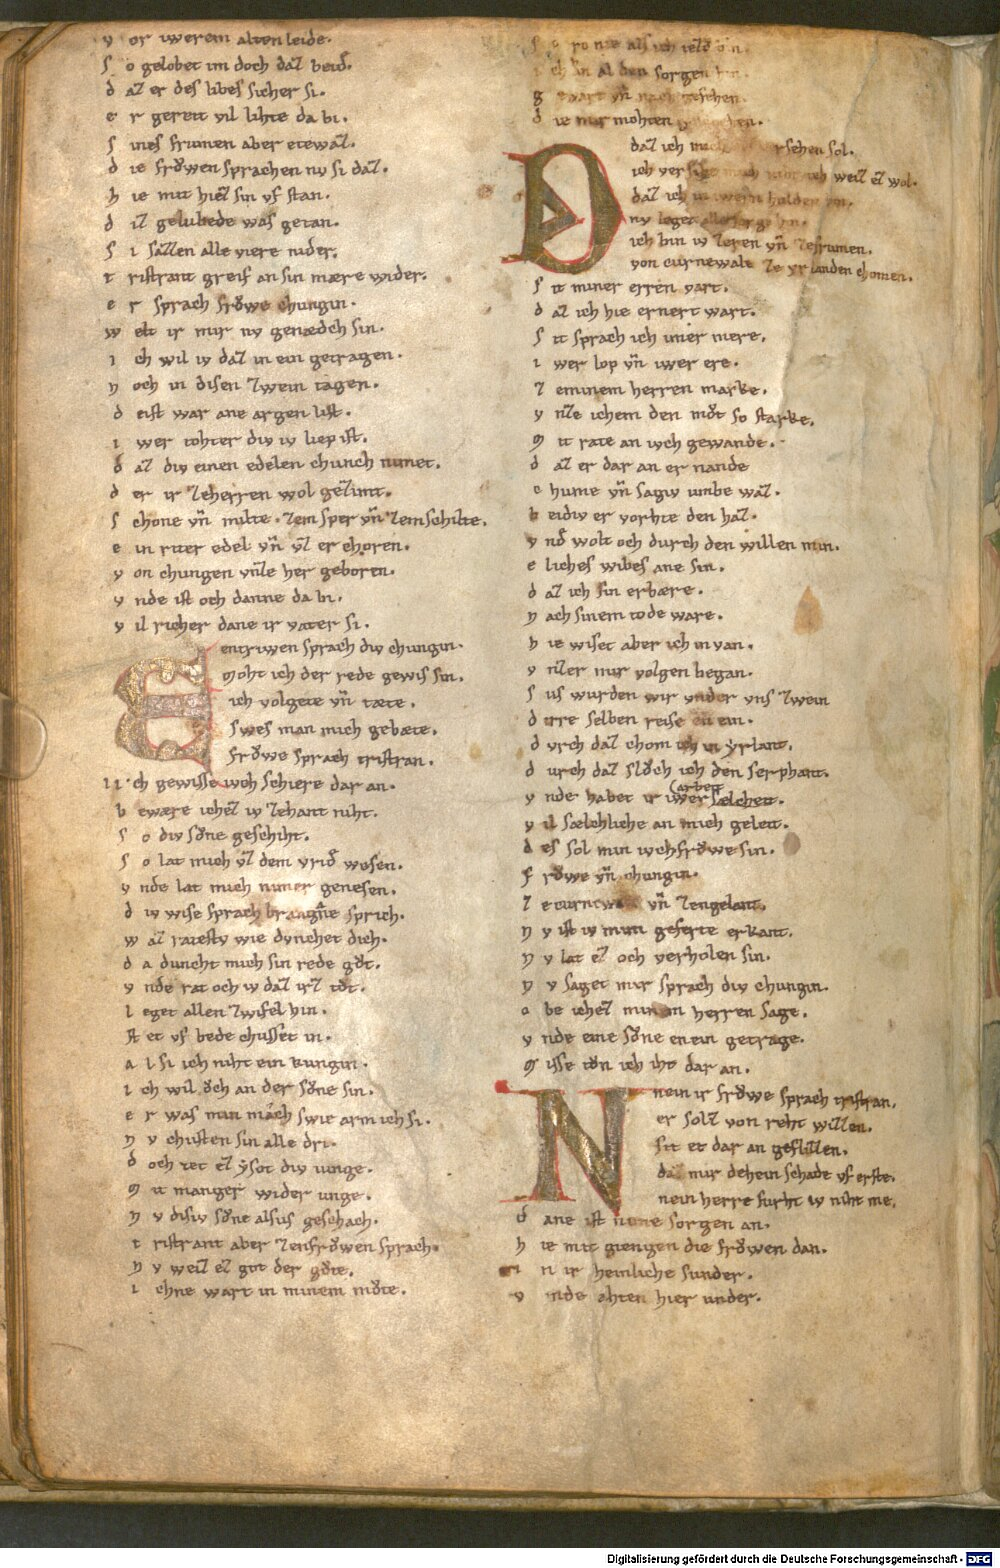 v or iwerem alten leide.
s o gelobet im doch daz beid̄.
d az er des libes sicher si.
e r gereit vil lihte da bi.
s ines frumen aber etewaz.
d ie frŏwen sprachen nv si daz.
h ie mit hiez sin vf stan.
d iz gelubede was getan.
s i sazzen alle viere nider.
t ristrant greif an sin mære wider.
e r sprach frŏwe chungin.
w elt ir mir nv genædech sin.
i ch wil iv daz in ein getragen.
n och in disen zwein tagen.
d eist war ane argen list.
i wer tohter div iv liep ist.
d az div einen edelen chunch nimet.
d er ir zeherren wol gezimt.
s chone vn̄ milte. zem sper vn̄ zem schilte.
e in riter edel vn̄ vz er choren.
v on chungen vnze her geboren.
v nde ist och danne da bi.
v il richer dane ir vater si.
E entriwen sprach div chungin.
moht ich der rede gewis sin.
ich volgete vn̄ tæte.
swes man mich gebæte.
frŏwe sprach tristran.
ich gewisse iwch schiere dar an.
b ewære ichez iv zehant niht.
s o div sŏne geschiht.
s o lat mich vz dem vrid̄ wesen.
v nde lat mich nimer genesen.
d iv wise sprach brangṅe sprich.
w az ratestv wie dvnchet dich.
d a duncht mich sin rede gŏt.
v nde rat och iv daz irz tŏt.
l eget allen zwifel hin.
st et vf bede chusset in.
a l si ich niht ein kungin.
i ch wil ŏch an der sŏne sin.
e r was min mâch swie arm ich si.
n v chusten sin alle dri.
d och tet ez ẏsot div iunge.
m it manger wider unge.
n v disiv sŏne alsus geschach.
t ristrant aber zen frŏwen sprach.
n v weiz ez got der gŏte.
i chne wart in minem mŏte.
s o ro nie als ich iezŏ bin.
i ch sin al den sorgen hin.
g ewart vn̄ nach gesehen.
d ie mir mohten
D daz ich mich versehen sol.
ich versihe mich niht ich weiz ez wol.
daz ich in iwern hulden bin.
nv leget alle sorge hin.
ich bin iv zeren vn̄ zefrumen.
von curnewale ze yrlanden chomen.
s it miner erren vart.
d az ich hie ernert wart.
s it sprach ich imer mere.
i wer lop vn̄ iwer ere.
z eminem herren marke.
v nze ichem den mŏt so starke.
m it rate an iwch gewande.
d az er dar an er nande
c hume vn̄ sagiv umbe waz.
b eidiv er vorhte den haz.
v nd̄ wolt och durch den willen min.
e liches wibes ane sin.
d az ich sin erbære.
n ach sinem tode ware.
h ie wiset aber ich in van.
v nzer mir volgen began.
s us wurden wir vnder vns zwein
d irre selben reise en ein.
d vrch daz chom ich in ẏrlant.
d urch daz slŏch ich den serphant.
v nde habet ir iwer arbeit sælchett.
v il sælchliche an mich geleit.
d es sol min iwch frŏwe sin.
f rŏwe vn̄ chungin.
z e curnewale vn̄ zengelant.
n v ist iv mun geferte erkant.
n v lat ez och verholen sin.
n v saget mir sprach div chungin.
o be ichez minem herren sage.
v nde eine sŏne enein getrage.
m isse tŏn ich iht dar an.
N nein ir frŏwe sprach tristran.
er solz von reht willen.
sit et dar an geflizzen.
daz mir dehein schade vf erste.
nein herre furht iv niht me.
d ane ist nime sorgen an.
h ie mit giengen die frŏwen dan.
i n ir heinliche sunder.
v nde ahten hier under.
Digitalisierung gefördert durch die Deutsche Forschungsgemeinschaft - DFG